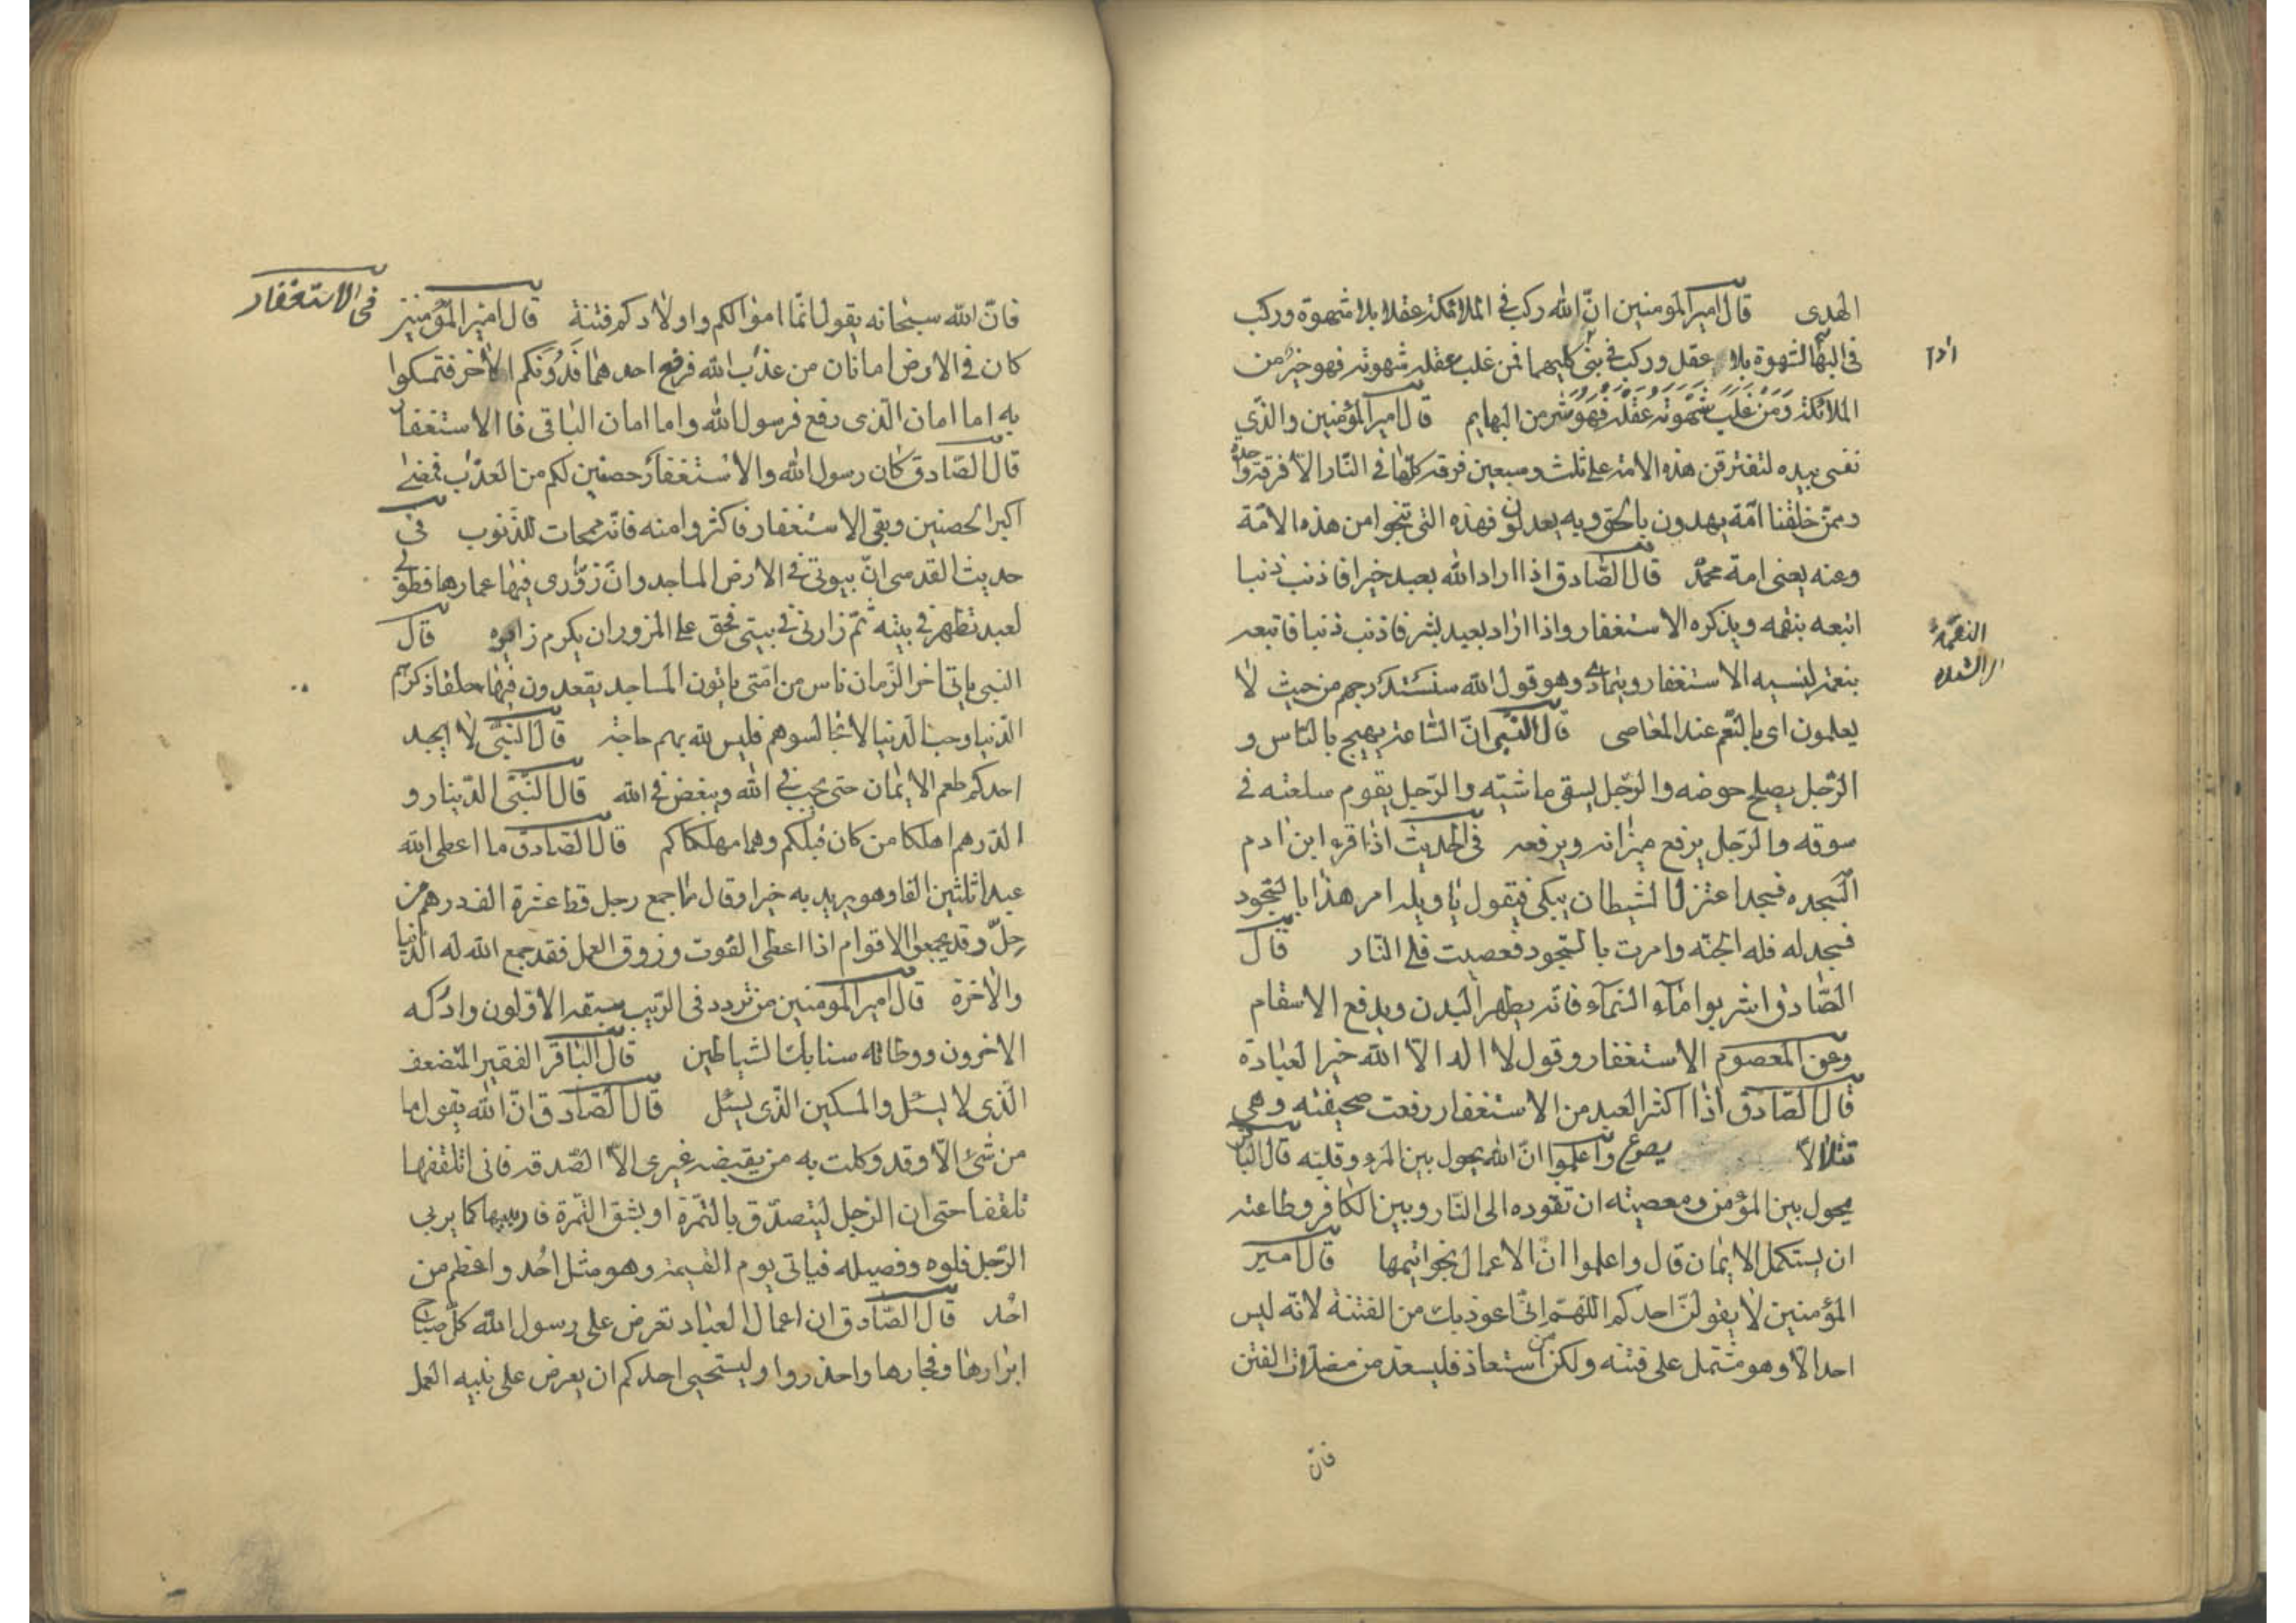 الهدى قال امير المومنين انّ الله ركب في الملائكة عقلا بلا شهوة وركب
في البهائم الشهوة بلا عقل وركب في بني كليهما فمن غلب عقله شهوته فهو خير من
ادم
الملائكة وَمَن غَلَبَ شهوته عقله فهو شر من البهايم قال امير المؤمنين والذي
نفسي بيده لتفترقن هذه الامة على ثلث وسبعين فرقة كلّها في النّار الا فرقة واحدة
وممّن خلقنا امّة يهدون بالحق وبه يعدلون فهذه التي تنجوا من هذه الامّة
وعنه يعني امة محمّد قال الصّادق اذا اراد الله بعبد خيرا فاذنب ذنبا
اتبعه بنقمه ويذكره الاستغفار واذا اراد بعبد بشر فاذنب ذنبا فاتبعه
النقمة
بنعمة لينسيه الاستغفار ويتمادى وهو قول الله سنستدرجهم من حيث لا
يعلمون اى بالنّعم عند المعاصى قال النّبي انّ السّاعة يهيج بالنّاس و
الرّجل يصلح حوضه والرّجل يسقى ماشيته والرّجل يقوم سلعته في
سوقه والرّجل يرفع ميزانه ويرفعه في الحديث اذا قرء ابن ادم
السّجده فسجد اعتزل الشيطان يبكى فيقول يا ويله امر هذا بالسّجود
فسجد له فله الجنّه وامرت بالسّجود فعصيت فلى النّار قال
الصّادق اشربوا ماء السّماء فانّه يطهر البدن ويدفع الاسقام
وعن المعصوم الاستغفار وقول لا اله الا الله خير العبادة
قال الصّادق اذا اكثر العبد من الاستغفار رفعت صحيفته وهي
تتلالأ واعلموا انّ الله يحول بين المرء وقلبه قال الباقر
يحول بين المؤمن ومعصيته ان تقوده الى النّار وبين الكافر وطاعته
ان يستكمل الايمان قال واعلموا انّ الاعمال بخواتيمها قال امير
المؤمنين لا يقولنّ احدكم اللّهمّ انّي اعوذ بك من الفتنة لانّه ليس
احد الا وهو مشتمل على فتنه ولكن من استعاذ فليستعذ من مضلات الفتن
فانّ
فانّ الله سبحانه يقول انّما اموالكم واولادكم فتنة قال امير المؤمنين
في الاستغفار
كان في الارض امانان من عذاب الله فرفع احدهما فدُونكم الاخر فتمسكوا
به اما امان الّذى رفع فرسول الله واما امان الباقى فالاستغفار
قال الصّادق كان رسول الله والاستغفار حصنين لكم من العذاب فمضى
اكبر الحصنين وبقى الاستغفار فاكثروا منه فانّه ممحات للذنوب فى
حديث القدسى انّ بيوتي في الارض المساجد وانّ زوّارى فيها عمارها فطوبى
لعبد تطهر في بيته ثمّ زارني في بيتى فحق على المزور ان يكرم زايره قال
النبى ياتى اخر الزّمان ناس من امّتى ياتون المساجد يقعدون فيها حلقا ذكرهم
الدّنيا وحب الدنيا لا تجالسوهم فليس لله بهم حاجة قال النّبيّ لا يجد
احدكم طعم الايمان حتى يحب في الله ويبغض في الله قال النّبيّ الدّينار و
الدّرهم اهلكا من كان قبلكم وهما مهلكاكم قال الصّادق ما اعطى الله
عبدا ثلثين الفا وهو يريد به خيرا وقال ما جمع رجل قط عشرة الف درهم من
حلّ وقد يجمعها الاقوام اذا اعطى القوت ورزق العمل فقد جمع الله له الدّنيا
والاخرة قال امير المومنين من تردد فى الرّيب سبقه الاوّلون وادركه
الاخرون ووطائه سنابك الشياطين قال الباقر الفقير المتضعف
الّذى لا يسئل والمسكين الّذى يسئل قال الصّادق انّ الله يقول ما
من شئ الّا وقد وكلت به من يقبضه غيرى الّا الصّدقة فانى اتلقفها
تلقفا حتى ان الرّجل ليتصدّق بالتّمرة او بشق التّمرة فاربيها كما يربى
الرّجل فلوه وفصيله فياتى يوم القيمة وهو مثل اُحد واعظم من
احُد قال الصّادق ان اعمال العباد تعرض على رسول الله كلّ صباح
ابرارها وفجارها واحذروا وليستحيى احدكم ان يعرض على نبيه العمل